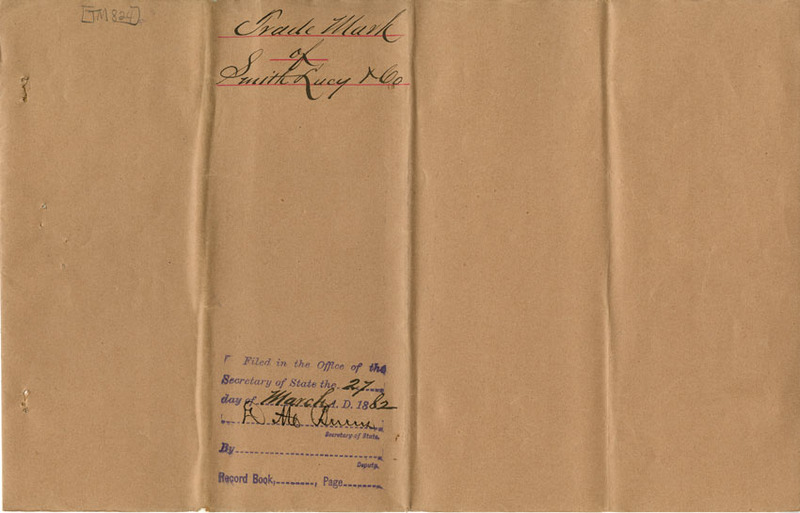 [TM 824]
Trade Mark
of
Smith Lucy & Co
Filed in the Office of the
Secretary of State the 27
day of March A. D. 1882
Secretary of State.
By
Deputy.
Record Book, , Page